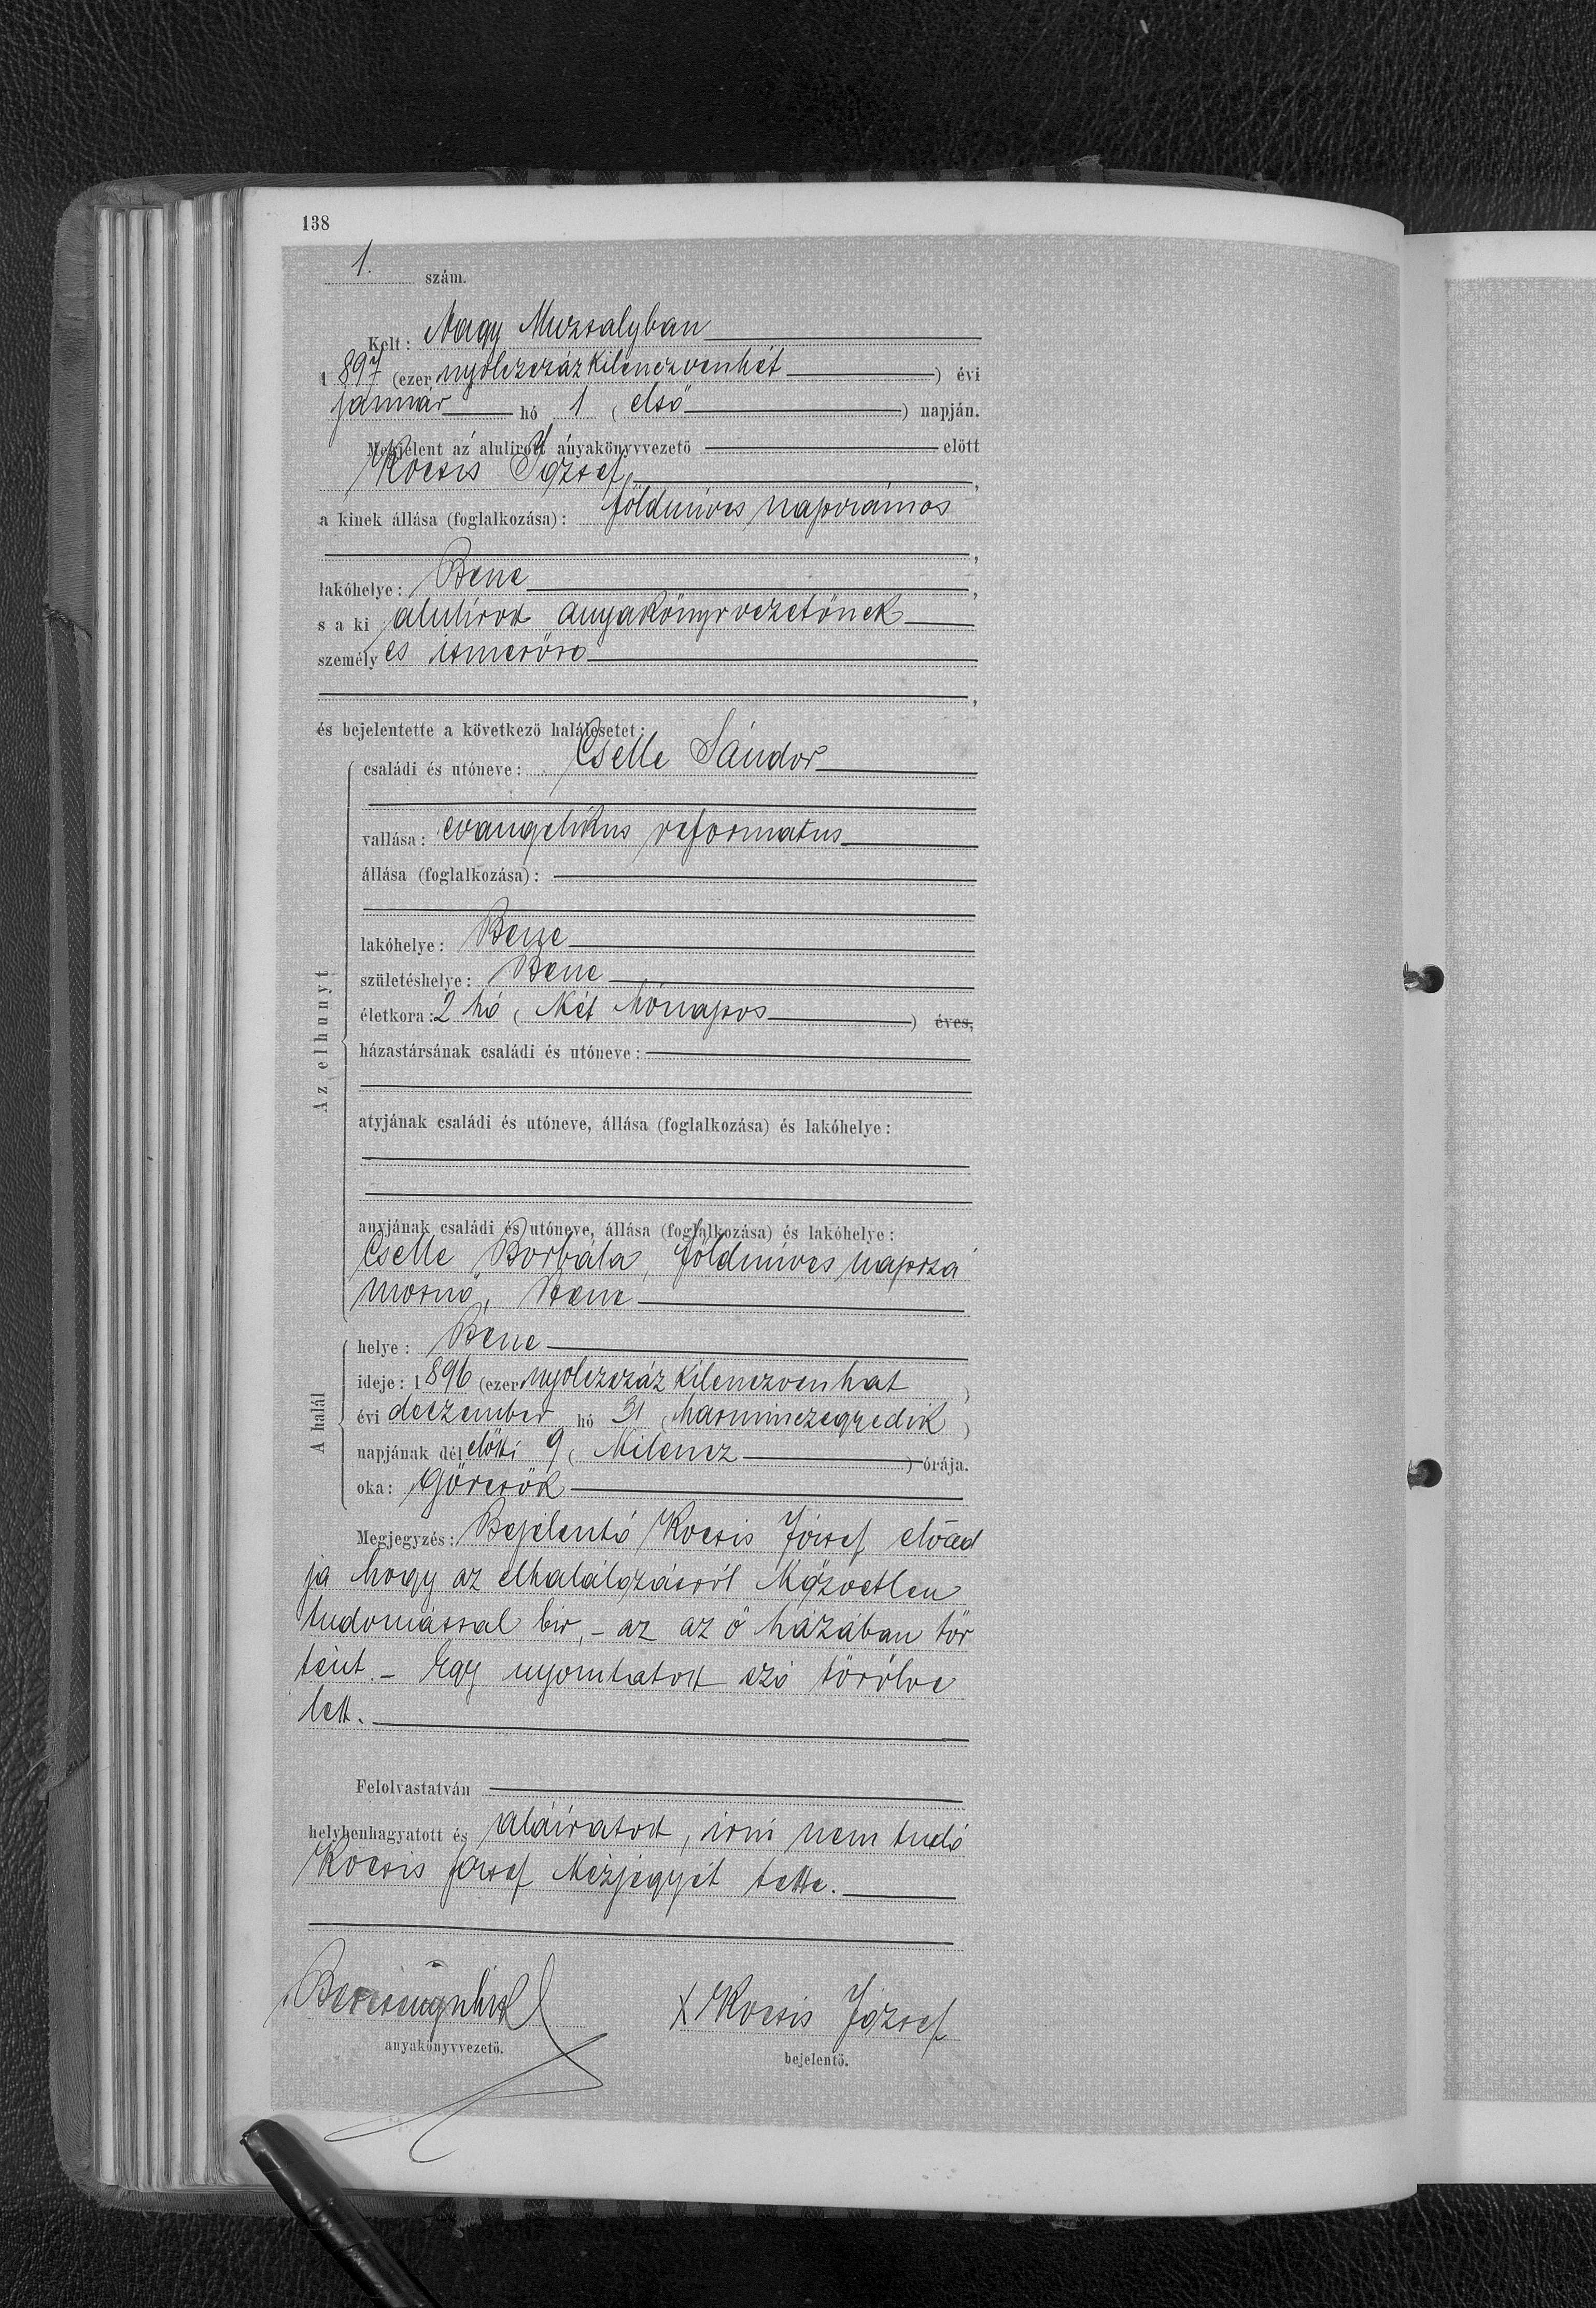 138
1. szám.
Kelt: Nagy Muzsalyban
1897 (ezer nyolczszázkilenczvenhét) évi
január hó 1 (első) napján.
Megjelent az alulirott anyakönyvvezető előtt
Kocsis József,
a kinek állása (foglalkozása): földmíves napszámos
lakóhelye: Bene,
s a ki alulírott anyakönyvvezetőnek
személyes ismerőse
és bejelentette a következő halálesetet:
Az elhunyt
családi és utóneve: Cselle Sándor
vallása: evangelikus reformatus
állása (foglalkozása):
lakóhelye: Bene
születéshelye: Bene
életkora: 2 hó (Két hónapos) éves,
házastársának családi és utóneve:
atyjának családi és utóneve, állása (foglalkozása) és lakóhelye:
anyjának családi és utóneve, állása (foglalkozása) és lakóhelye:
Cselle Borbála, földmíves napszá
mosnő, Bene
A halál
helye: Bene
ideje: 1896 (ezer nyolczszáz kilenczvenhat)
évi deczember hó 31 (harminczegyedik)
napjának délelőtti 9 (Kilencz) órája.
oka: Görcsök
Megjegyzés: Bejelentő Kocsis József előad
ja hogy az elhalálozásról Közvetlen
tudomással bir, - az az ő házában tör
tént. - Egy nyomtatott szó törölve
lett.
Felolvastatván
helybenhagyatott és aláiratott, irni nem tudó
Kocsis József Kézjegyét tette.
anyakönyvvezető.
X Kocsis József
bejelentő.